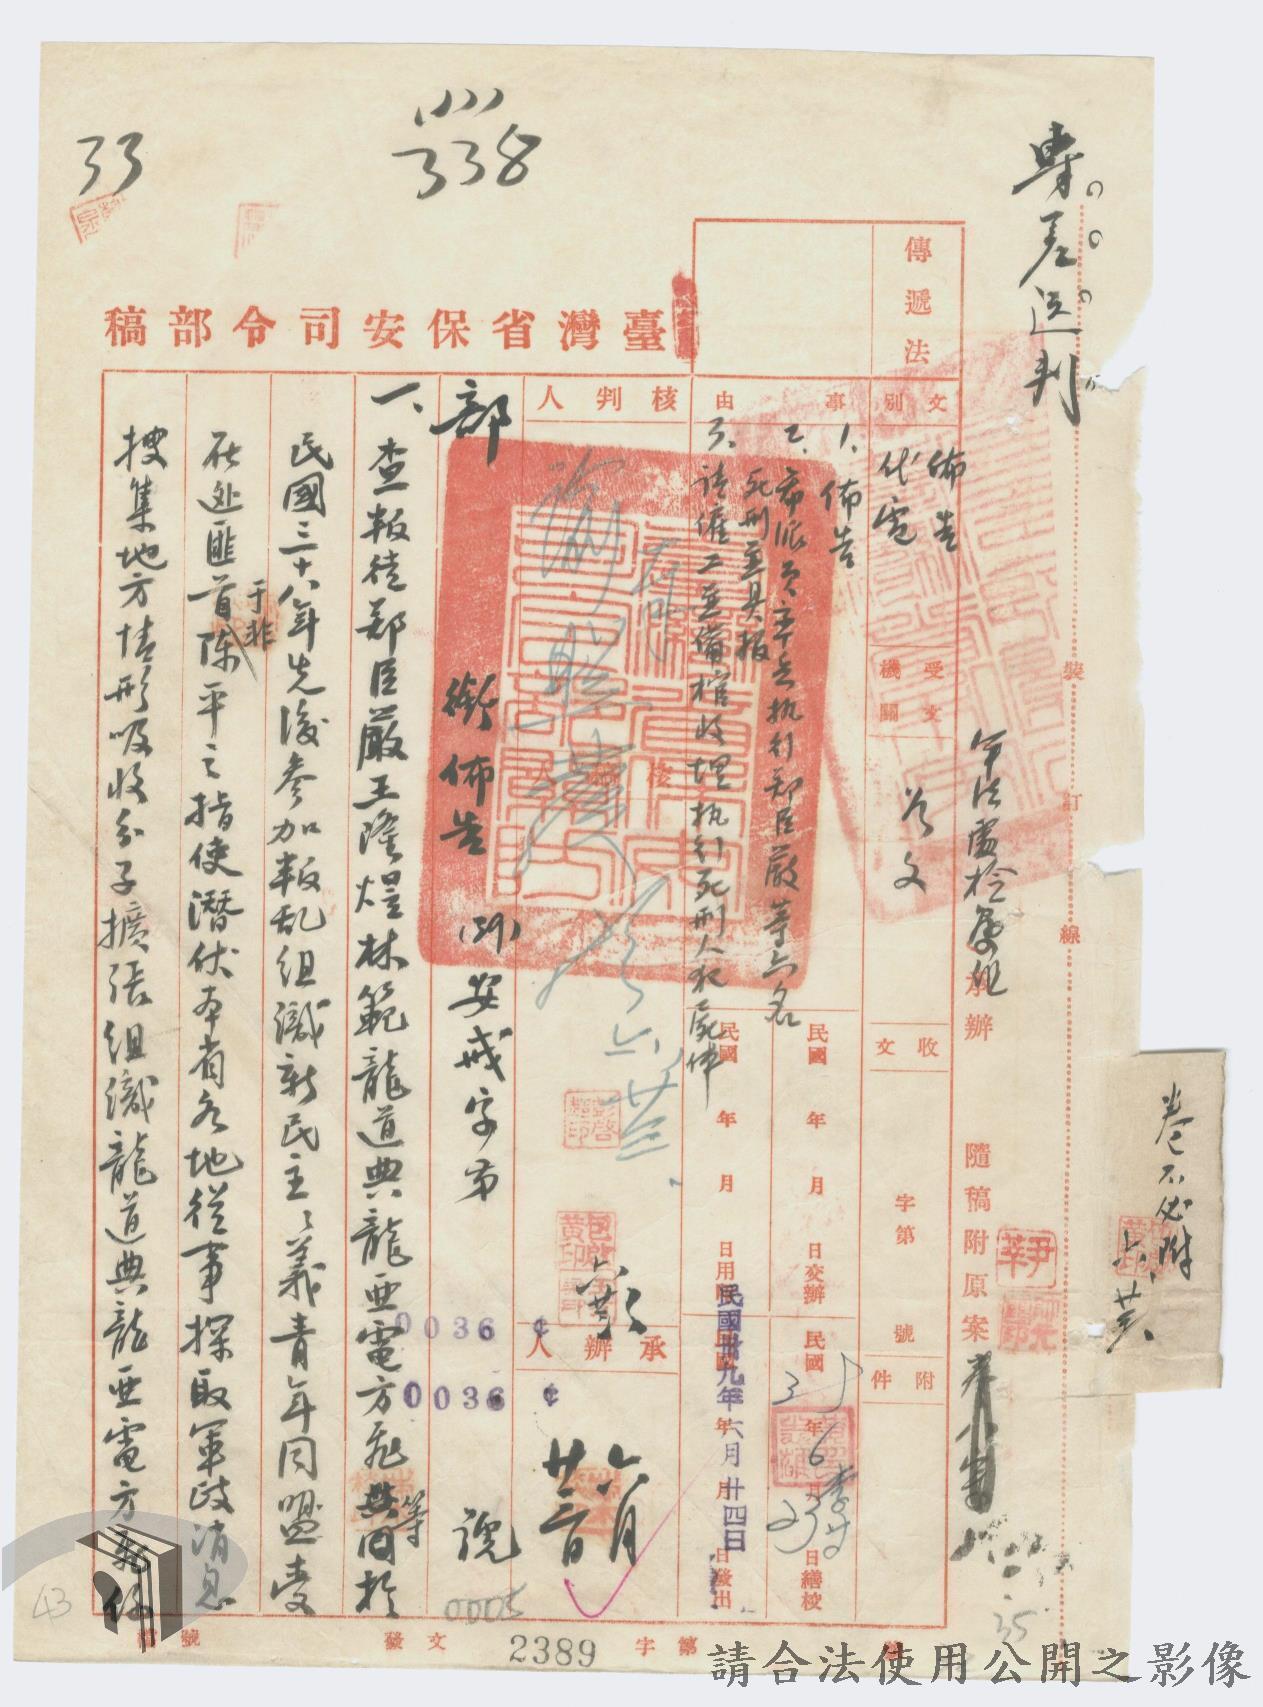 33
338
專差送判
臺灣省保安司令部稿
傳遞法
文別
佈告
代電
受文機關
收文
字第
號
附件
軍法處檢
承辦
隨稿附原案
事由
1、佈告
2、希派員率兵執行鄭臣嚴等六名
死刑並具報
3、請僱工並備棺收埋執行死刑人犯屍体
民國 年 月 日交辦
民國 年 月 日繕校
民國 年 月 日用印
民國 年 月 日發出
民國卅九年六月廿四日
核判人
承辦人
六月
廿三日
部
銜佈告
(39)安戒字第
號
0005
0036
0036
一、
查叛徒鄭臣嚴王隆煜林範龍道典龍亜電方飛等共同於
民國三十八年先後參加叛乱組織新民主々義青年同盟受
在逃匪首陳平之指使潛伏本省各地從事探取軍政消息
于非
搜集地方情形吸收分子擴張組織龍道典龍亜電方飛係
卷不必附
裝
訂
線
43
35
發文
字第
2389
號
請合法使用公開之影像